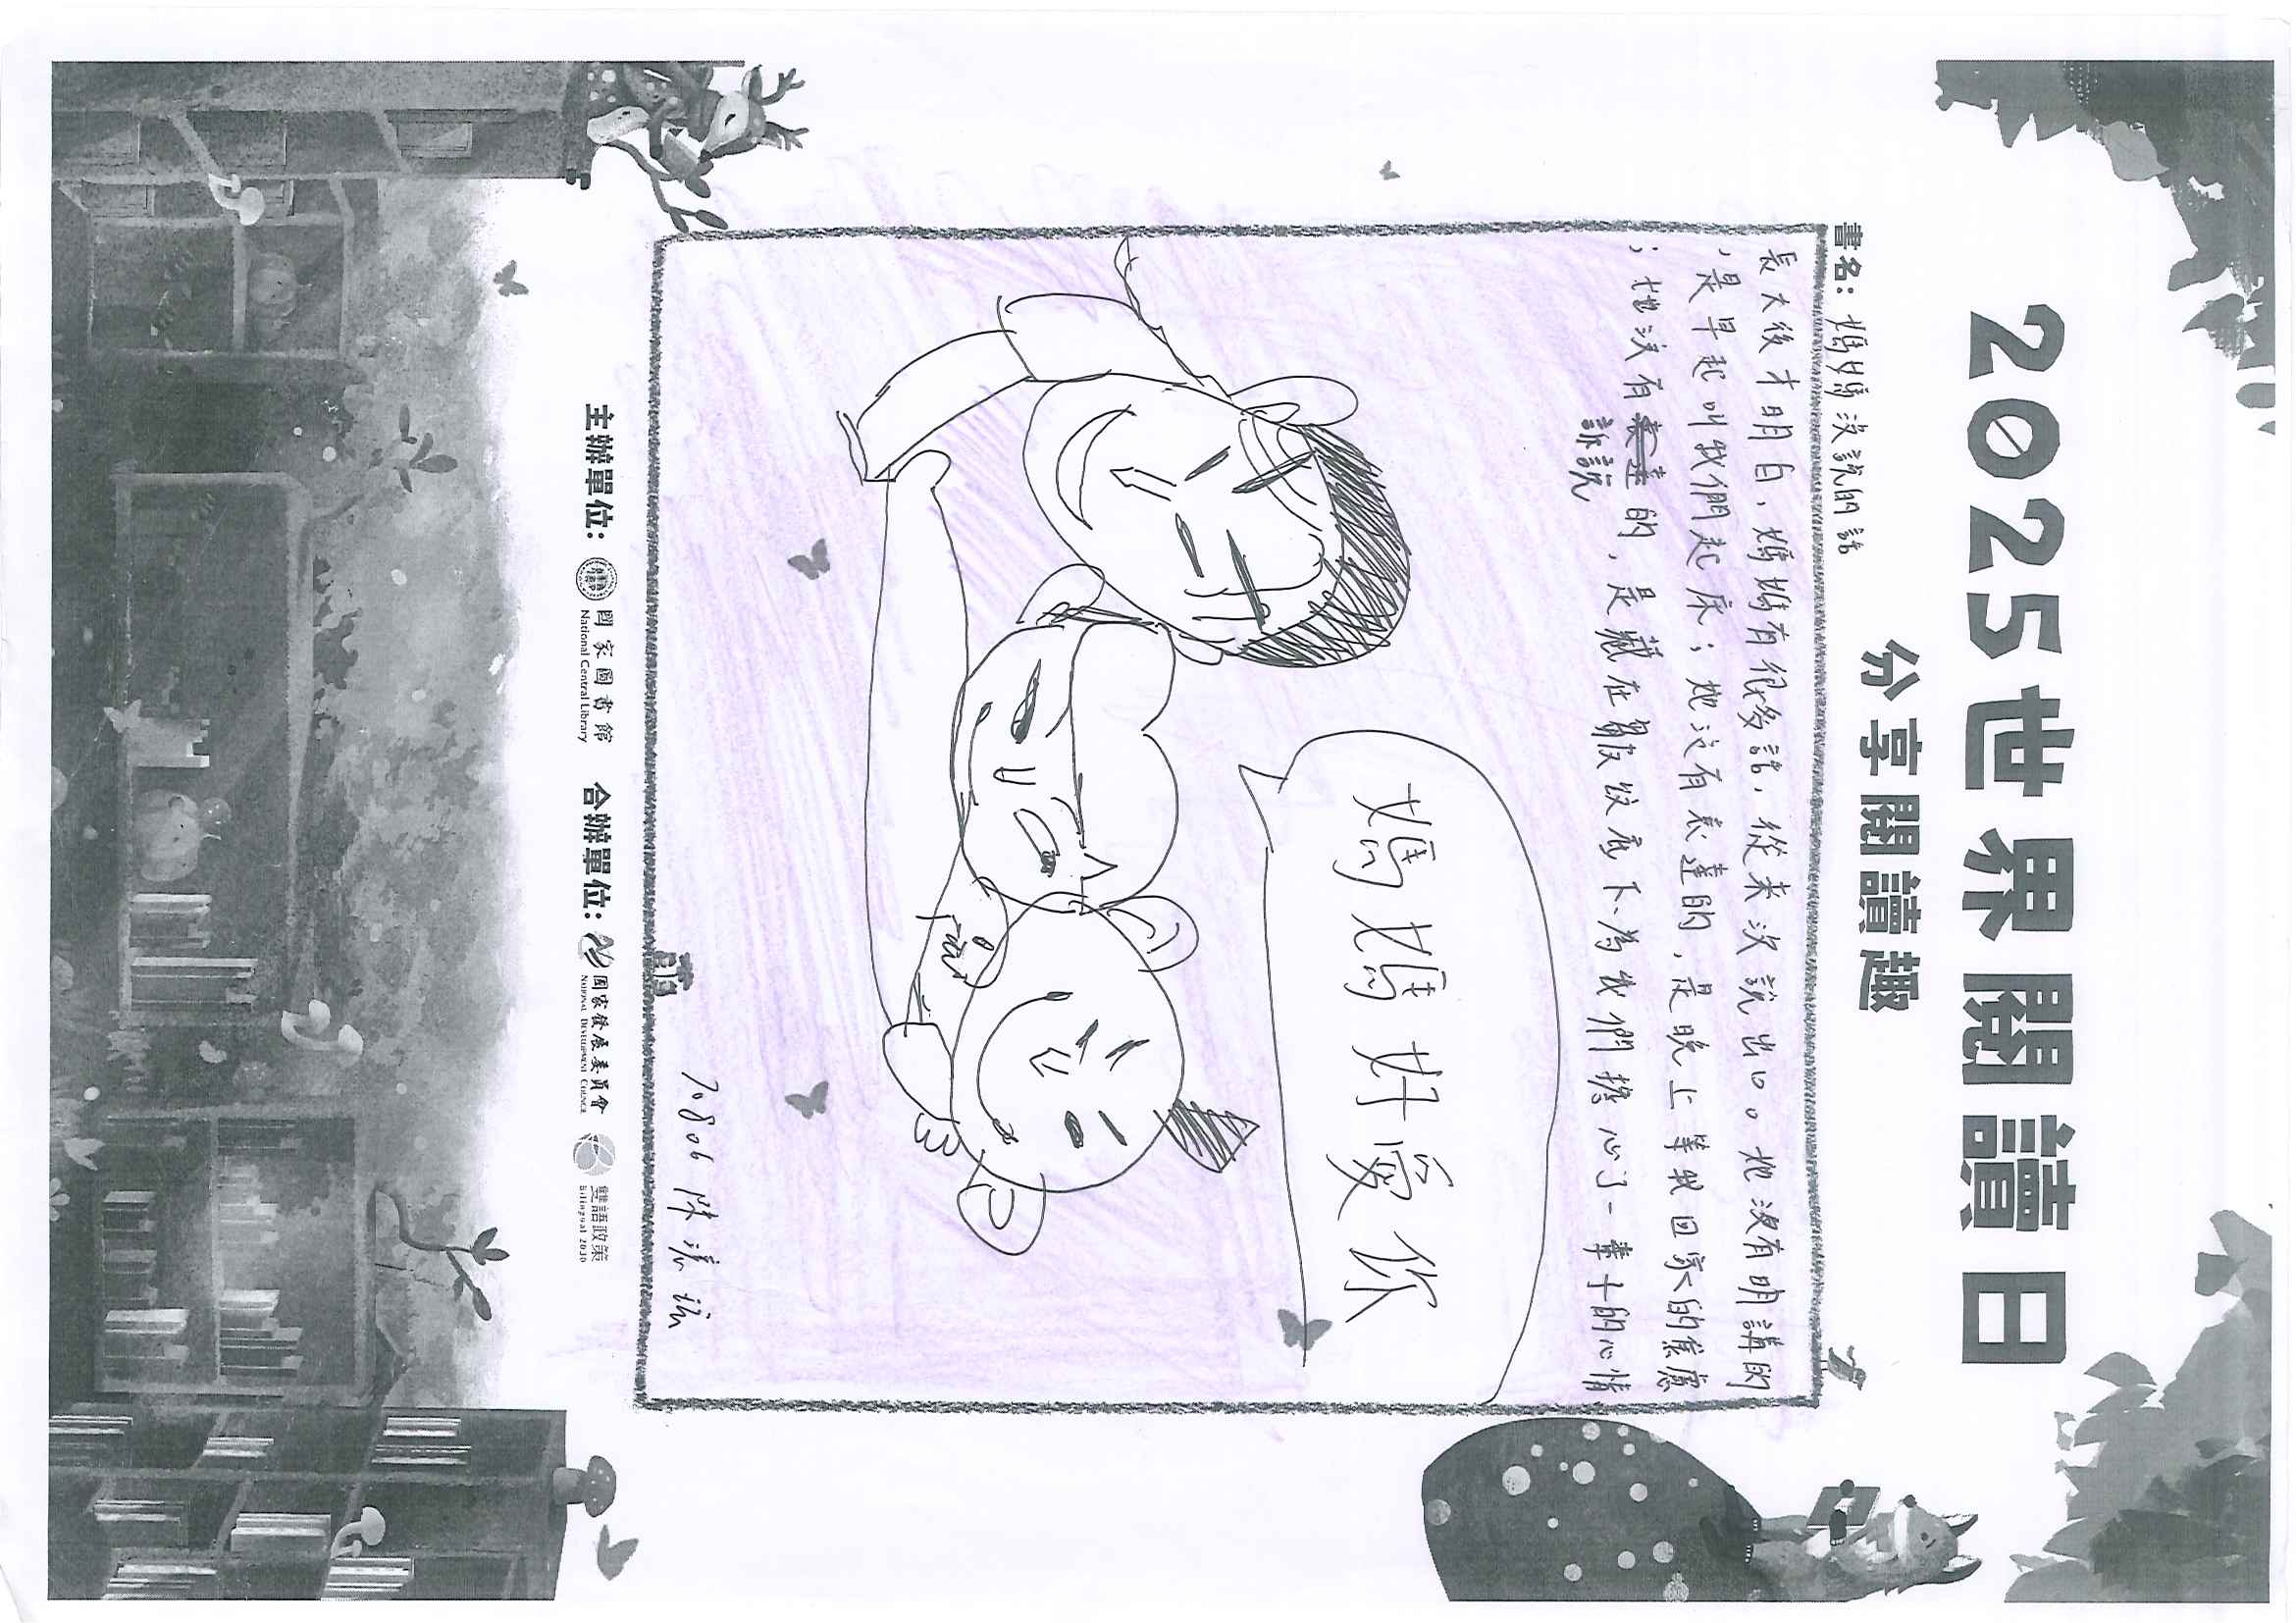 2025世界閱讀日
分享閱讀趣
書名：媽媽沒說的話
長大後才明白，媽媽有很多話，從來沒說出口。她沒有明講的
，是早起叫我們起床；她沒有表達的，是晚上等我回家的焦慮
；她沒有訴說的，是藏在皺紋底下、為我們擔心了一輩子的心情
媽媽好愛你
70806 陳
讀
主辦單位：
國家圖書館
National Central Library
合辦單位：
國家發展委員會
NATIONAL DEVELOPMENT COUNCIL
雙語政策
Bilingual 2030